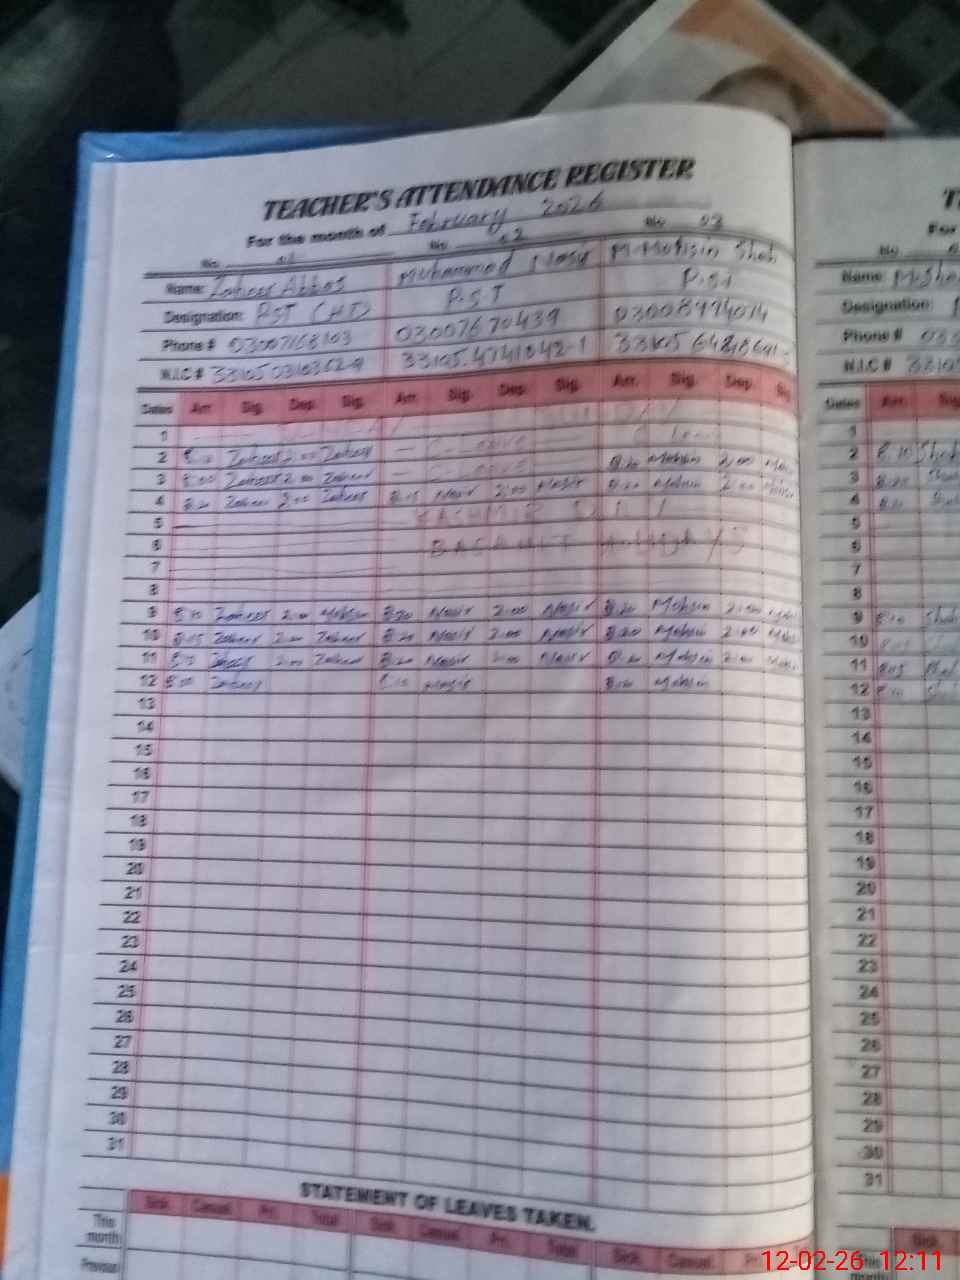 TEACHER'S ATTENDANCE REGISTER
For the month of February 2026
No 01 No 02 No 03
Name: Zaheer Abbas Muhammad Nasir M. Mohsin Shah
Designation: PST (HT) P.S.T P.S.T
Phone # 03007168103 03007670439 03008974014
N.I.C # 33105 0310362-9 33105.4741042-1
Dates Arr. Sig. Dep. Sig. Arr. Sig. Dep. Sig. Arr. Sig. Dep. Sig.
1
2 Zaheer 2:00 Zaheer — C-Leave —
3 8:00 Zaheer 2:00 Zaheer C-Leave 8:20 Mohsin 2:00
4 8:20 Zaheer 2:00 Zaheer 8:15 Nasir 2:00 Nasir 8:20 Mohsin 2:00 Mohsin
5 KASHMIR DAY
6 BASANT Holidays
7
8
9 8:10 Zaheer 2:00 Mohsin 8:20 Nasir 2:00 Nasir 8:20 Mohsin 2:00
10 8:15 Zaheer 2:00 Zaheer 8:20 Nasir 2:00 Nasir 8:20 Mohsin 2:00
11 8:10 Zaheer 2:00 Zaheer 8:20 Nasir 2:00 Nasir 8:20 Mohsin 2:00
12 8:00 Zaheer 8:10 Nasir 8:20 Mohsin
13
14
15
16
17
18
19
20
21
22
23
24
25
26
27
28
29
30
31
STATEMENT OF LEAVES TAKEN.
Sick. Casual. Pri. Total Sick. Casual. Pri. Total Sick. Casual.
This month
Previous
T
For
No
Name: M. Sha
Designation:
Phone # 03
N.I.C # 33105
Dates Arr. Sig
1
2 8:10 Shah
3 8:20 Shah
4
5
6
7
8
9 8:10 Shah
10
11 8:15
12
13
14
15
16
17
18
19
20
21
22
23
24
25
26
27
28
29
30
31
Sick.
This month
12-02-26 12:11